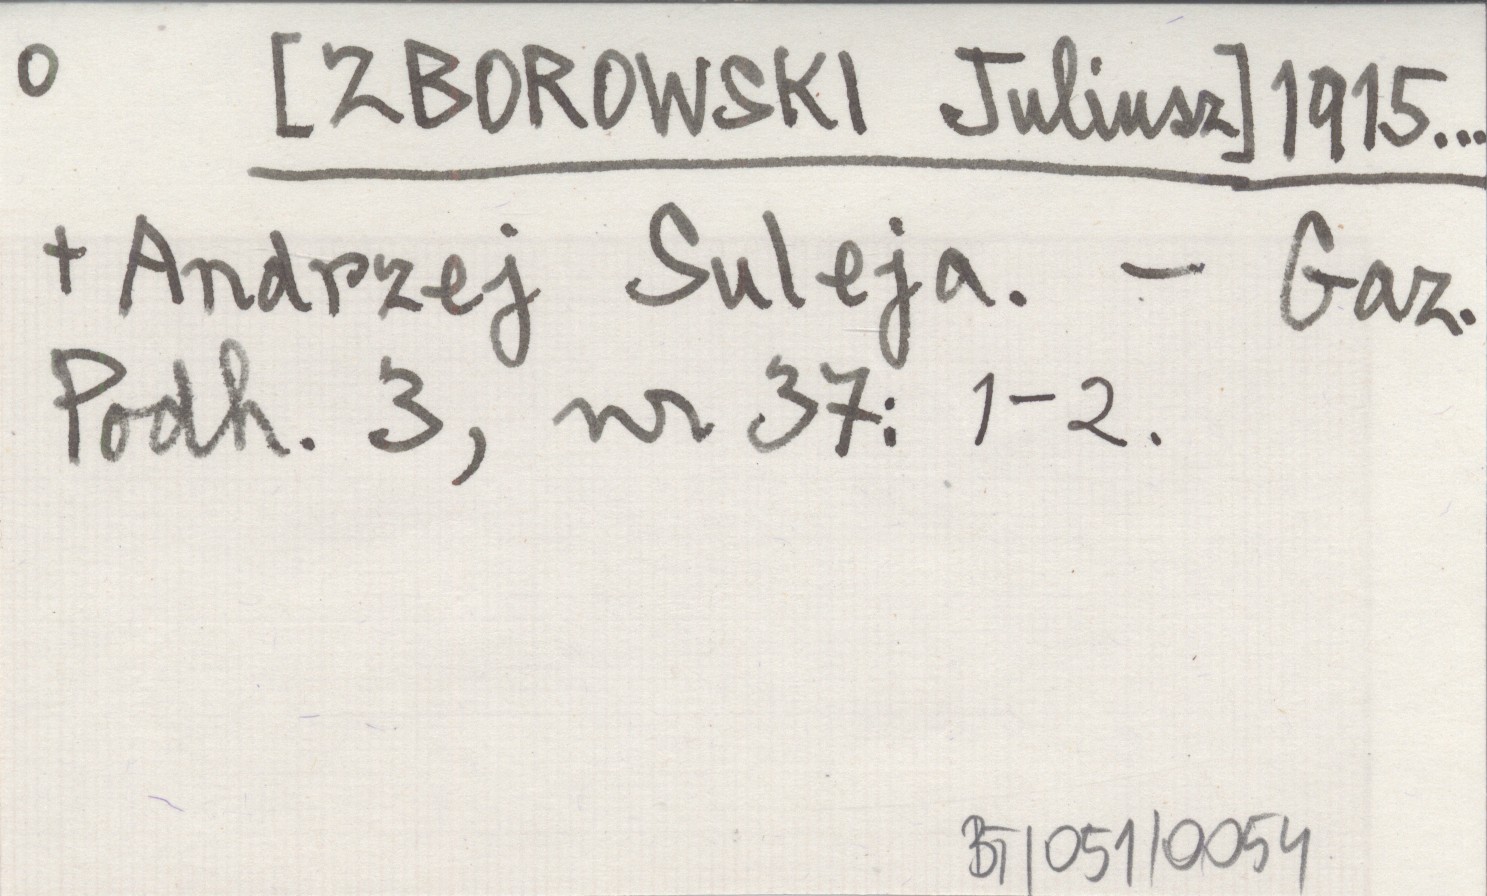 o [ZBOROWSKI Juliusz] 1915...
+ Andrzej Suleja. – Gaz.
Podh. 3, nr 37: 1–2.
BT/051/0054